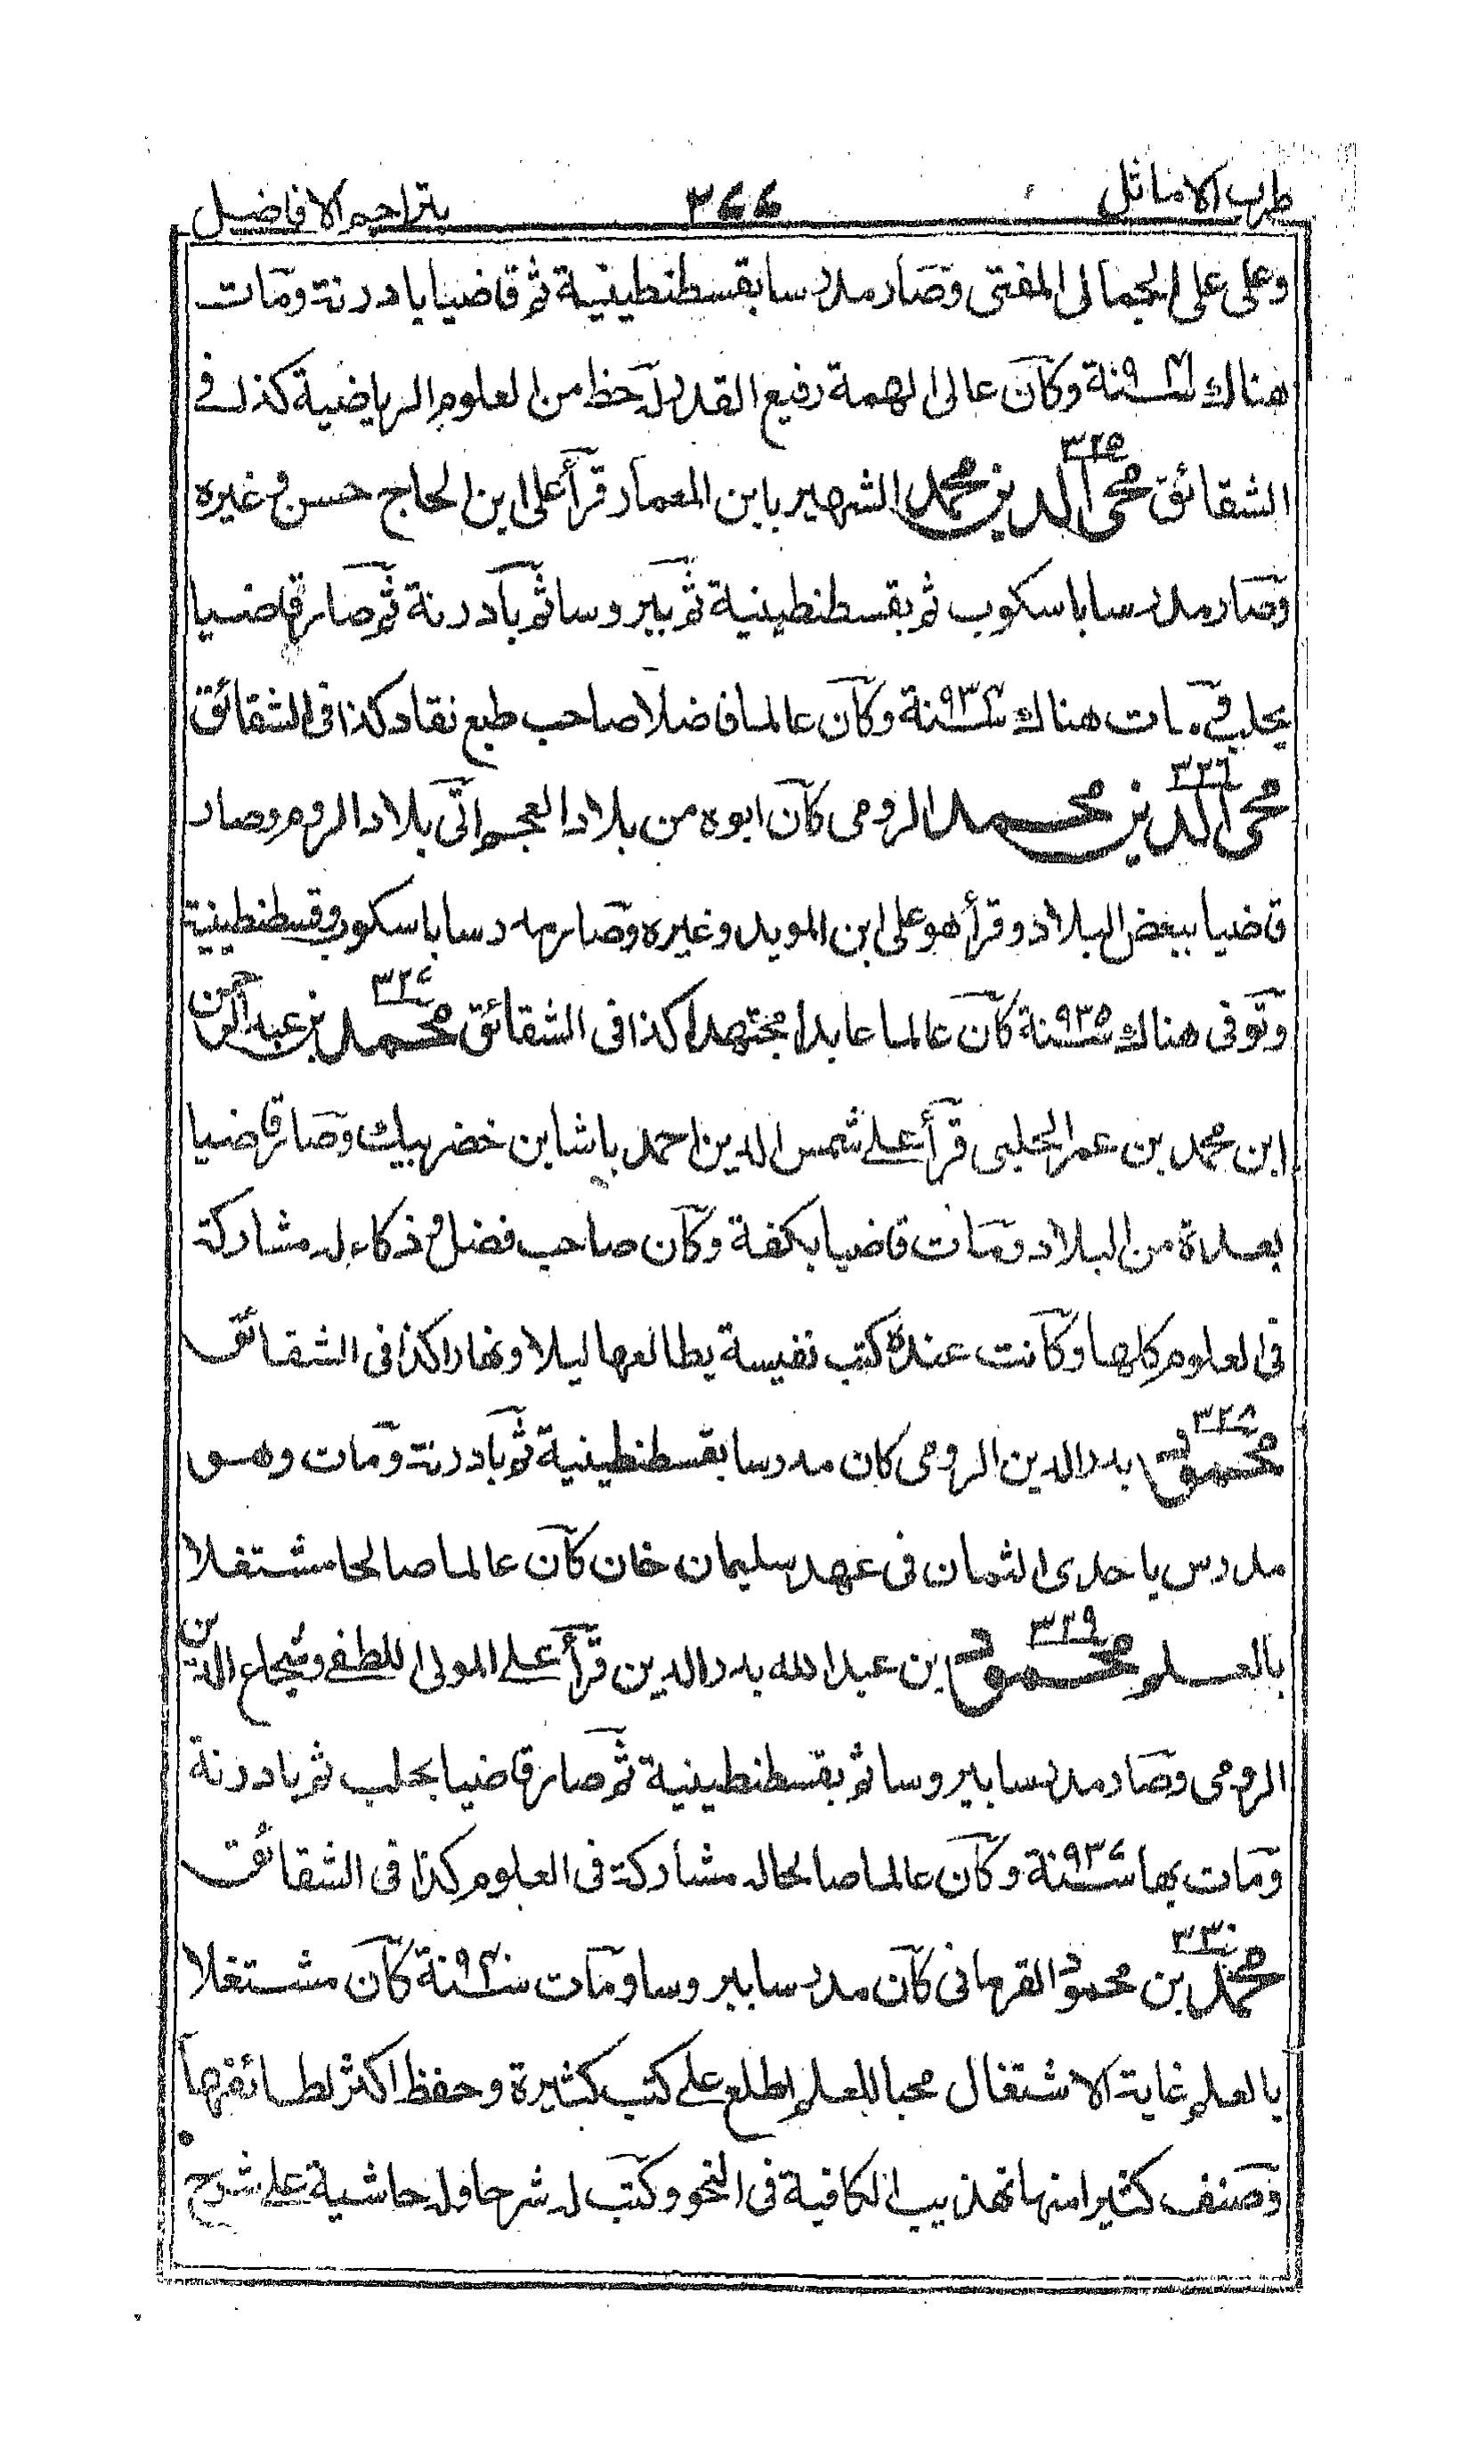 طرب الاماثل ٢٦٦ بتراجم الافاضل
وعلى على الجمالى المفتى وصار مدرسا بقسطنطينية ثم قاضيا بادرنة ومات
هناك سنة وكان عالى الهمة رفيع القدر له حظ من العلوم الرياضية كذا فى
الشقائق ٣٢٥ محى الدين محمد الشهير بابن المعمار قرأ على ابن الحاج حسن وغيره
وصار مدرسا باسكوب ثم بقسطنطينية ثم ببروسا ثم بآدرنة ثم صار قاضيا
بحلب ومات هناك سنة ٩٣٤ وكان عالما فاضلا صاحب طبع نقاد كذا فى الشقائق
٣٢٦ محى الدين محمد الرومى كان ابوه من بلاد العجم اتى بلاد الروم وصار
قاضيا ببعض البلاد وقرأ هو على ابن المويد وغيره وصار مدرسا باسكوب وقسطنطينية
وتوفى هناك سنة ٩٣٥ كان عالما عابدا مجتهدا كذا فى الشقائق ٣٢٧ محمد بن عبد الرحمن
ابن محمد بن عمر الحلبى قرأ على شمس الدين احمد باشا بن خضر بيك وصار قاضيا
بعدة من البلاد ومات قاضيا بكفة وكان صاحب فضل وذكاء له مشاركة
فى العلوم كلها وكانت عنده كتب نفيسة يطالعها ليلا ونهارا كذا فى الشقائق
٣٢٨ محمود بدر الدين الرومى كان مدرسا بقسطنطينية ثم بادرنة ومات وهو
مدرس باحدى الثمان فى عهد سليمان خان كان عالما صالحا مشتغلا
بالعلم ٣٢٩ محمود بن عبد الله بدر الدين قرأ على المولى اللطفى وشجاع الدين
الرومى وصار مدرسا ببروسا ثم بقسطنطينية ثم صار قاضيا بحلب ثم بادرنة
ومات بها سنة ٩٣٧ وكان عالما صالحا له مشاركة فى العلوم كذا فى الشقائق
٣٣٠ محمد بن محمود القرمانى كان مدرسا ببروسا ومات سنة كان مشتغلا
بالعلم غاية الاشتغال محبا للعلم اطلع على كتب كثيرة وحفظ اكثر لطائفها
وصنف كثيرا منها تهذيب الكافية فى النحو وكتب له شرحا وله حاشية على شرح